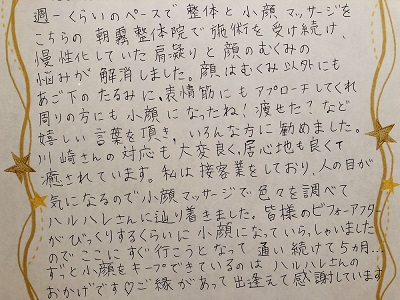 週一くらいのペースで整体と小顔マッサージを
こちらの朝霧整体院で施術を受け続け、
慢性化していた肩凝りと顔のむくみの
悩みが解消しました。顔はむくみ以外にも
あご下のたるみに、表情筋にもアプローチしてくれ
周りの方にも小顔になったね!痩せた?など
嬉しい言葉を頂き、いろんな方に勧めました。
川崎さんの対応も大変良く、居心地も良くて
癒されています。私は接客業をしており、人の目が
気になるので小顔マッサージで色々を調べて
ハルハレさんに辿り着きました。皆様のビフォーアフター
がびっくりするくらいに小顔になっていらっしゃいました
のでここにすぐ行こうとなって通い続けて5か月...
ずっと小顔をキープできているのはハルハレさんの
おかげです♡ご縁があって出逢えて感謝しています